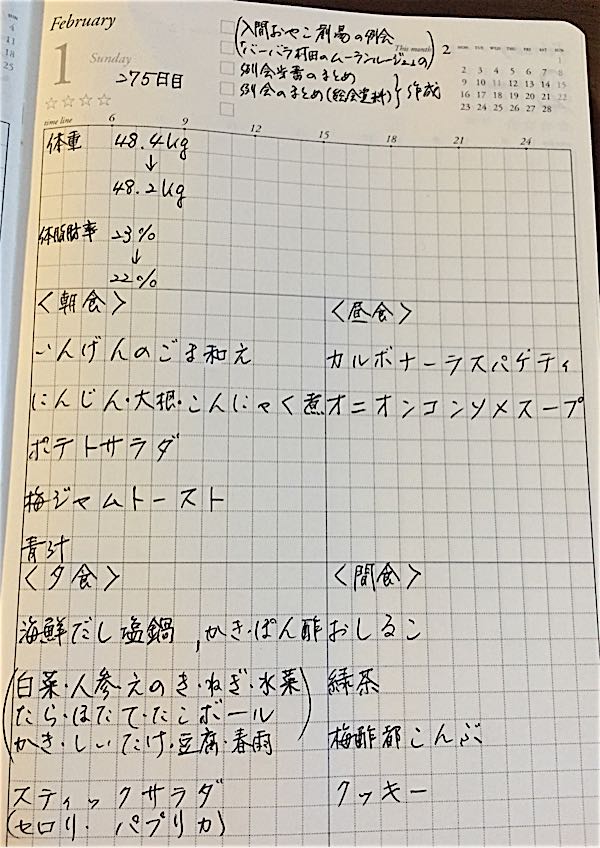 February
1
Sunday
275日目
(入間おやこ劇場の例会
「バーバラ村田のムーランルージュ」の)
例会学習のまとめ
例会のまとめ(総会資料)}作成
This month 2
MON TUE WED THU FRI SAT SUN
1
2 3 4 5 6 7 8
9 10 11 12 13 14 15
16 17 18 19 20 21 22
23 24 25 26 27 28
time line 6 9 12 15 18 21 24
体重 48.4kg
↓
48.2kg
体脂肪率 23%
↓
22%
<朝食>
いんげんのごま和え
にんじん・大根・こんにゃく煮
ポテトサラダ
梅ジャムトースト
青汁
<昼食>
カルボナーラスパゲティ
オニオンコンソメスープ
<夕食>
海鮮だし塩鍋,かき・ぽん酢
(白菜・人参・えのき・ねぎ・水菜
たら・ほたて・たこボール
かき・しいたけ・豆腐・春雨)
スティックサラダ
(セロリ・パプリカ)
<間食>
おしるこ
緑茶
梅酢都こんぶ
クッキー